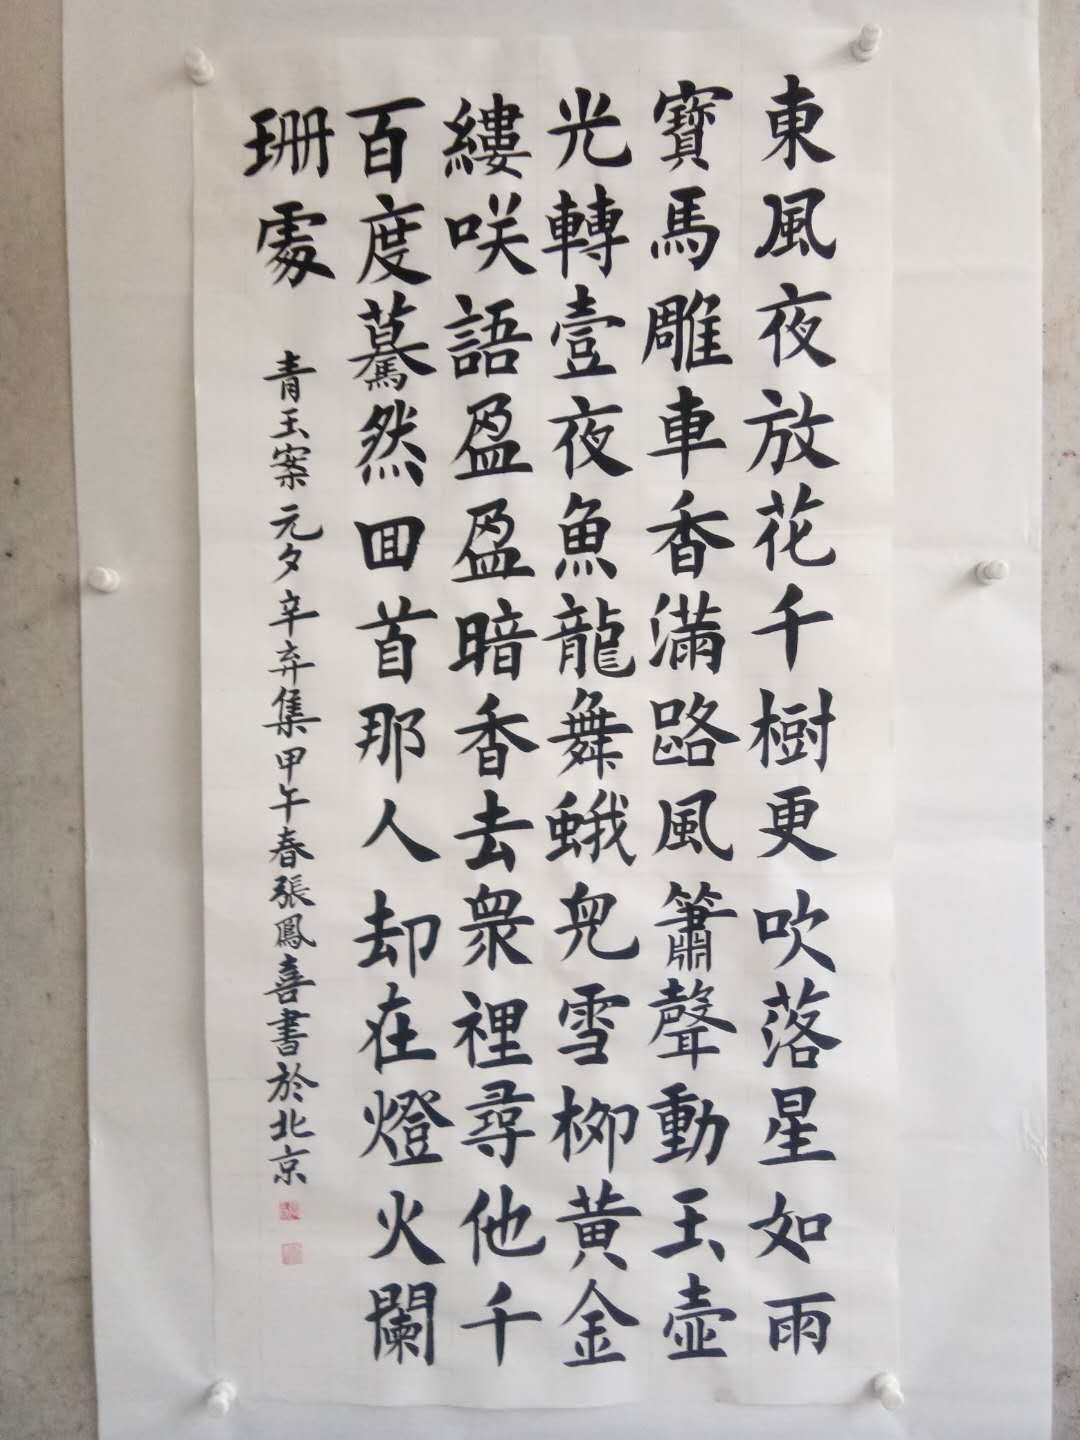 東風夜放花千樹更吹落星如雨
寶馬雕車香滿路風簫聲動玉壺
光轉壹夜魚龍舞蛾兒雪柳黃金
縷咲語盈盈暗香去衆裡尋他千
百度驀然囬首那人却在燈火闌
珊處
青玉案元夕辛弃集甲午春張鳳喜書於北京